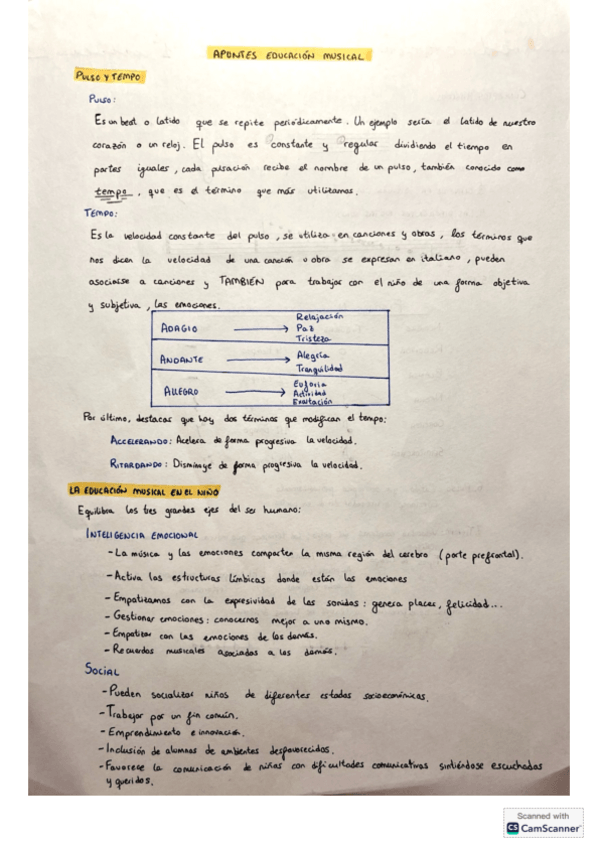 APUNTES EDUCACIÓN MUSICAL
PULSO Y TEMPO
PULSO:
Es un beat o latido que se repite periódicamente. Un ejemplo sería el latido de nuestro
corazón o un reloj. El pulso es constante y regular dividiendo el tiempo en
partes iguales, cada pulsación recibe el nombre de un pulso, también conocido como
tempo, que es el término que más utilizamos.
TEMPO:
Es la velocidad constante del pulso, se utiliza en canciones y obras, los términos que
nos dicen la velocidad de una canción u obra se expresan en italiano, pueden
asociarse a canciones y TAMBIÉN para trabajar con el niño de una forma objetiva
y subjetiva, las emociones.
ADAGIO → Relajación
Paz
Tristeza
ANDANTE → Alegría
Tranquilidad
ALLEGRO → Euforia
Actividad
Exaltación
Por último, destacar que hay dos términos que modifican el tempo:
ACCELERANDO: Acelera de forma progresiva la velocidad.
RITARDANDO: Disminuye de forma progresiva la velocidad.
LA EDUCACIÓN MUSICAL EN EL NIÑO
Equilibra los tres grandes ejes del ser humano:
INTELIGENCIA EMOCIONAL
- La música y las emociones comparten la misma región del cerebro (parte prefrontal).
- Activa las estructuras límbicas donde están las emociones
- Empatizamos con la expresividad de los sonidos: genera placer, felicidad...
- Gestionar emociones: conocernos mejor a uno mismo.
- Empatizar con las emociones de los demás.
- Recuerdos musicales asociados a los demás.
SOCIAL
- Pueden socializar niños de diferentes estados socioeconómicos.
- Trabajar por un fin común.
- Emprendimiento e innovación.
- Inclusión de alumnos de ambientes desfavorecidos.
- Favorece la comunicación de niños con dificultades comunicativas sintiéndose escuchados
y queridos.
Scanned with
CS CamScanner